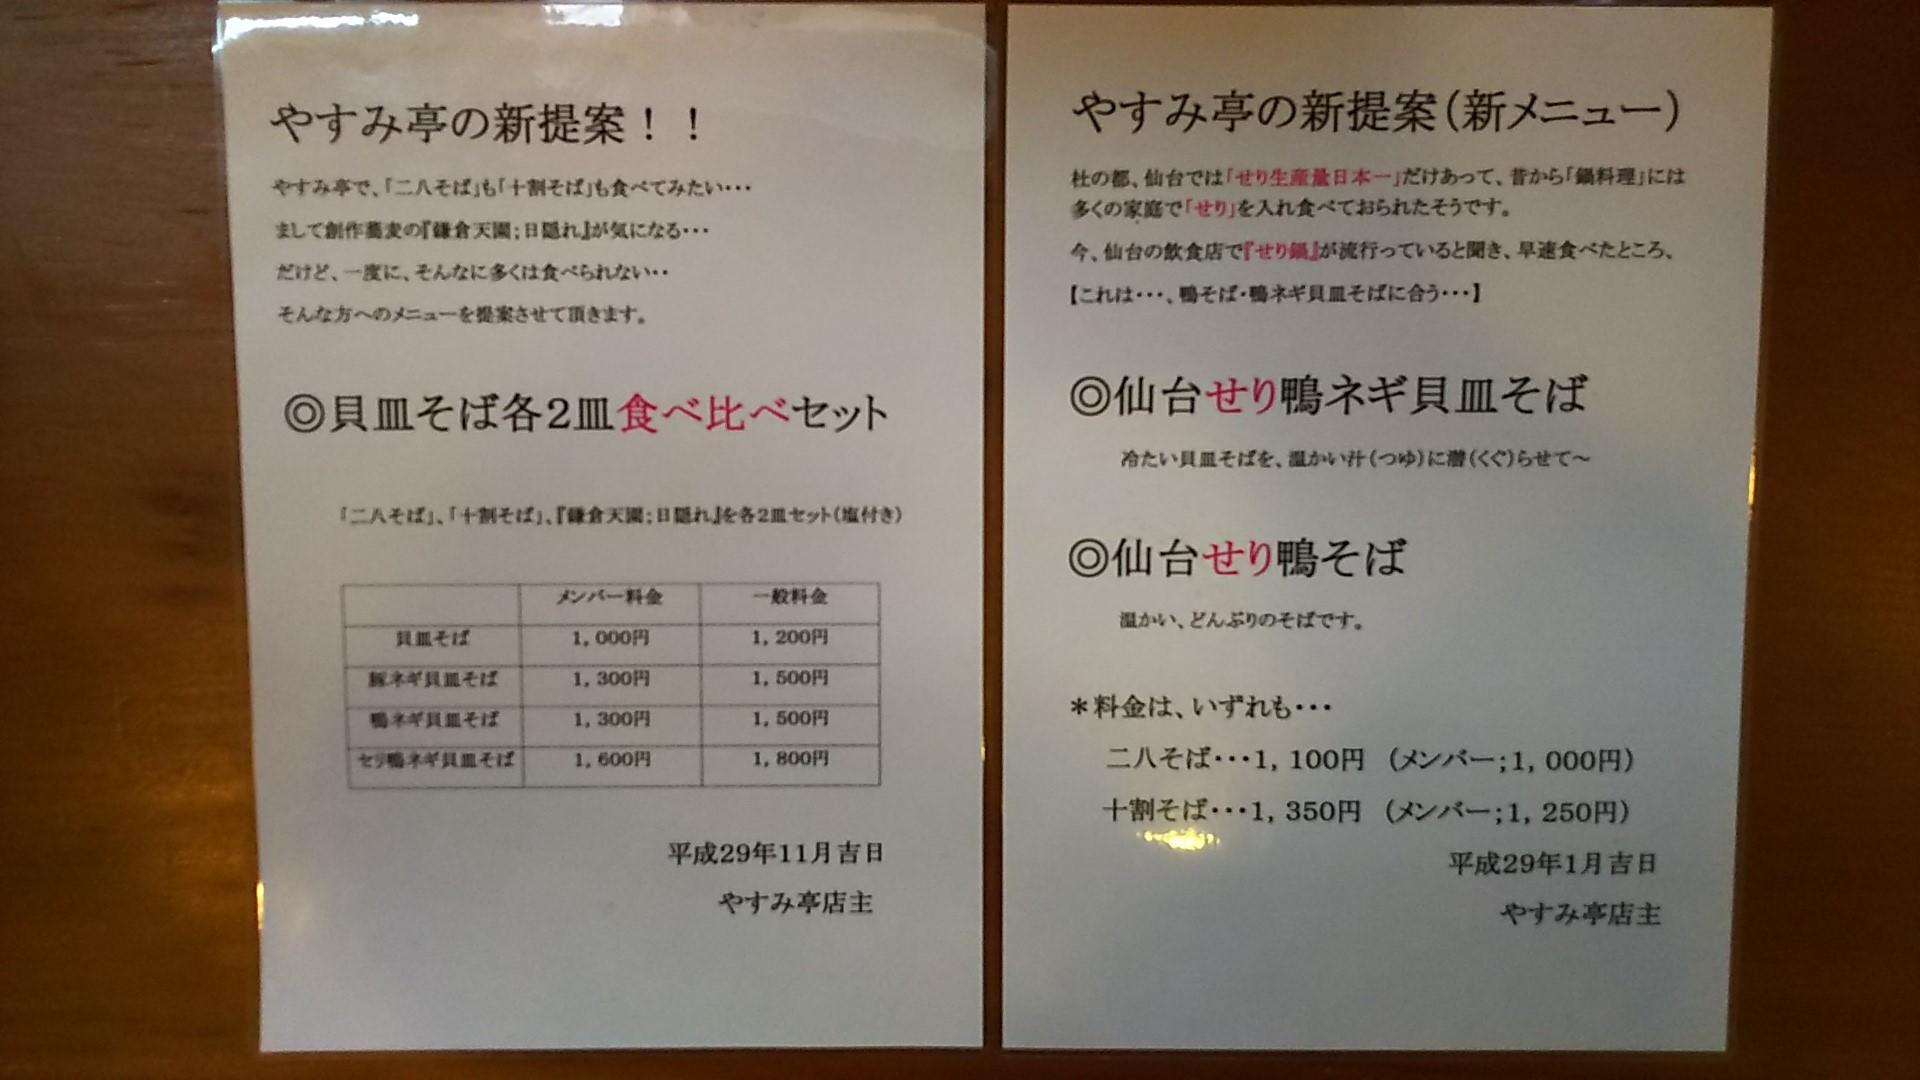 やすみ亭の新提案！！
やすみ亭で、「二八そば」も「十割そば」も食べてみたい・・・
まして創作蕎麦の『鎌倉天園；日隠れ』が気になる・・・
だけど、一度に、そんなに多くは食べられない・・
そんな方へのメニューを提案させて頂きます。
◎貝皿そば各2皿食べ比べセット
「二八そば」、「十割そば」、『鎌倉天園；日隠れ』を各2皿セット（塩付き）
メンバー料金 一般料金
貝皿そば 1，000円 1，200円
豚ネギ貝皿そば 1，300円 1，500円
鴨ネギ貝皿そば 1，300円 1，500円
セリ鴨ネギ貝皿そば 1，600円 1，800円
平成29年11月吉日
やすみ亭店主
やすみ亭の新提案（新メニュー）
杜の都、仙台では「せり生産量日本一」だけあって、昔から「鍋料理」には
多くの家庭で「せり」を入れ食べておられたそうです。
今、仙台の飲食店で『せり鍋』が流行っていると聞き、早速食べたところ、
【これは・・・、鴨そば・鴨ネギ貝皿そばに合う・・・】
◎仙台せり鴨ネギ貝皿そば
冷たい貝皿そばを、温かい汁（つゆ）に潜（くぐ）らせて～
◎仙台せり鴨そば
温かい、どんぶりのそばです。
＊料金は、いずれも・・・
二八そば・・・1，100円 （メンバー；1，000円）
十割そば・・・1，350円 （メンバー；1，250円）
平成29年1月吉日
やすみ亭店主